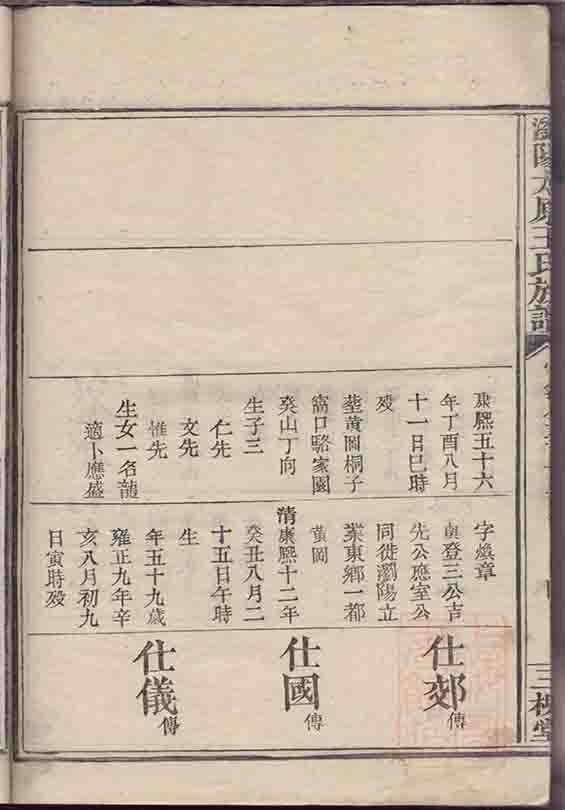 瀏陽太原王氏族譜
三槐堂
康熙五十六
年丁酉八月
十一日巳時
歿
塟黃岡桐子
窩口駱家園
癸山丁向
生子三
仁先
文先
惟先
生女一名龍
適卜應盛
字煥章
與登三公吉
先公應室公
同徙瀏陽立
業東鄉一都
黃岡
清康熙十二年
癸丑八月二
十五日午時
生
年五十九歲
雍正九年辛
亥八月初九
日寅時歿
仕郊傳
仕國傳
仕儀傳